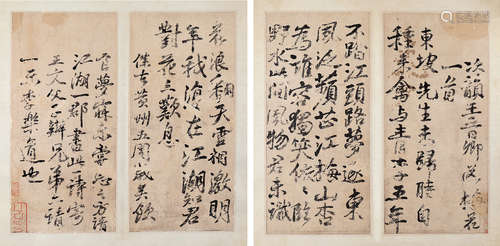 次韻王晉卿送梅花
一首
東坡先生未歸時自
種來禽与青李五年
不踏江頭路夢逐東
風泛蘋芷江梅山杏
為誰容獨笑依依臨
野水此間風物君未識
花浪翻天雪相激明
年我復在江湖知君
對花三歎息
僕去黃州五周歲矣飲
食夢寐未嘗忘之方請
江湖一郡書此一詩寄
王文父子辯兄弟亦請
一示李樂道也